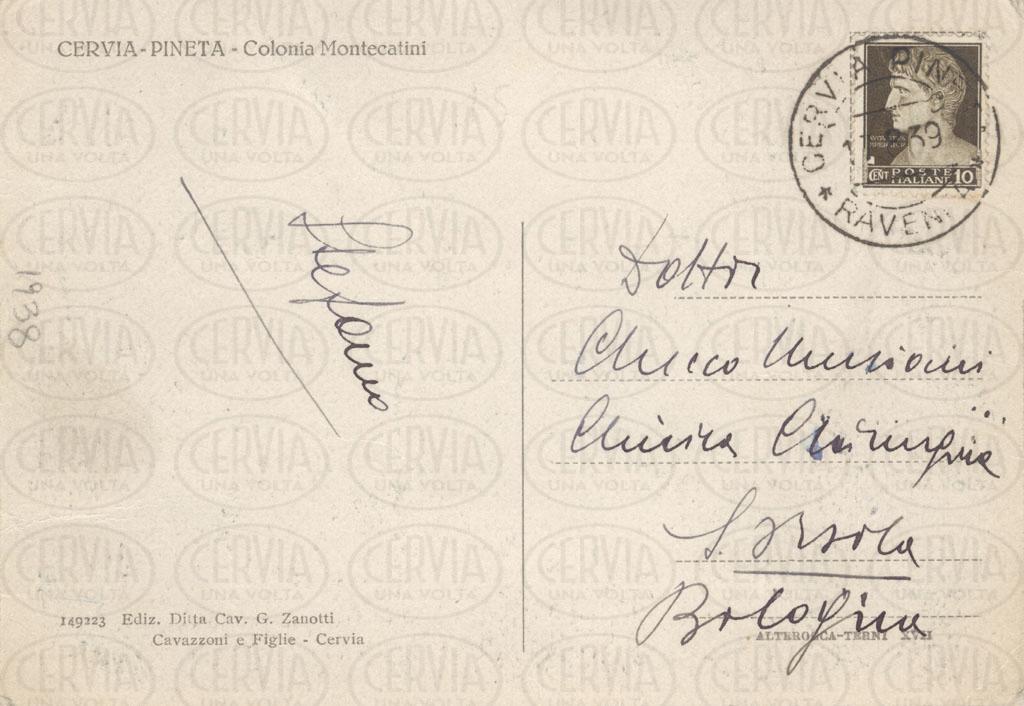 CERVIA-PINETA - Colonia Montecatini
CERVIA PINETA
39
* RAVENNA
POSTE
CENT ITALIANE 10
Stefano
1938
Dottor
Checco
Clinica Chirurgica
S. Orsola
Bologna
149223 Ediz. Ditta Cav. G. Zanotti
Cavazzoni e Figlie - Cervia
ALTEROCCA-TERNI XVII
CERVIA
UNA VOLTA